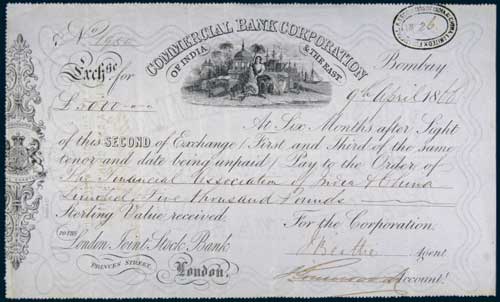 COMMERCIAL BANK CORPORATION
OF INDIA & THE EAST
No
26
Exch^se for
£5000
Bombay
9th April 1866
At Six Months after Sight
of this SECOND of Exchange (First and Third of the Same
tenor and date being unpaid) Pay to the Order of
The Financial Association of India & China
Limited Five thousand Pounds
Sterling Value received.
For the Corporation.
TO THE
London Joint Stock Bank
Agent
PRINCES STREET,
London.
Account!